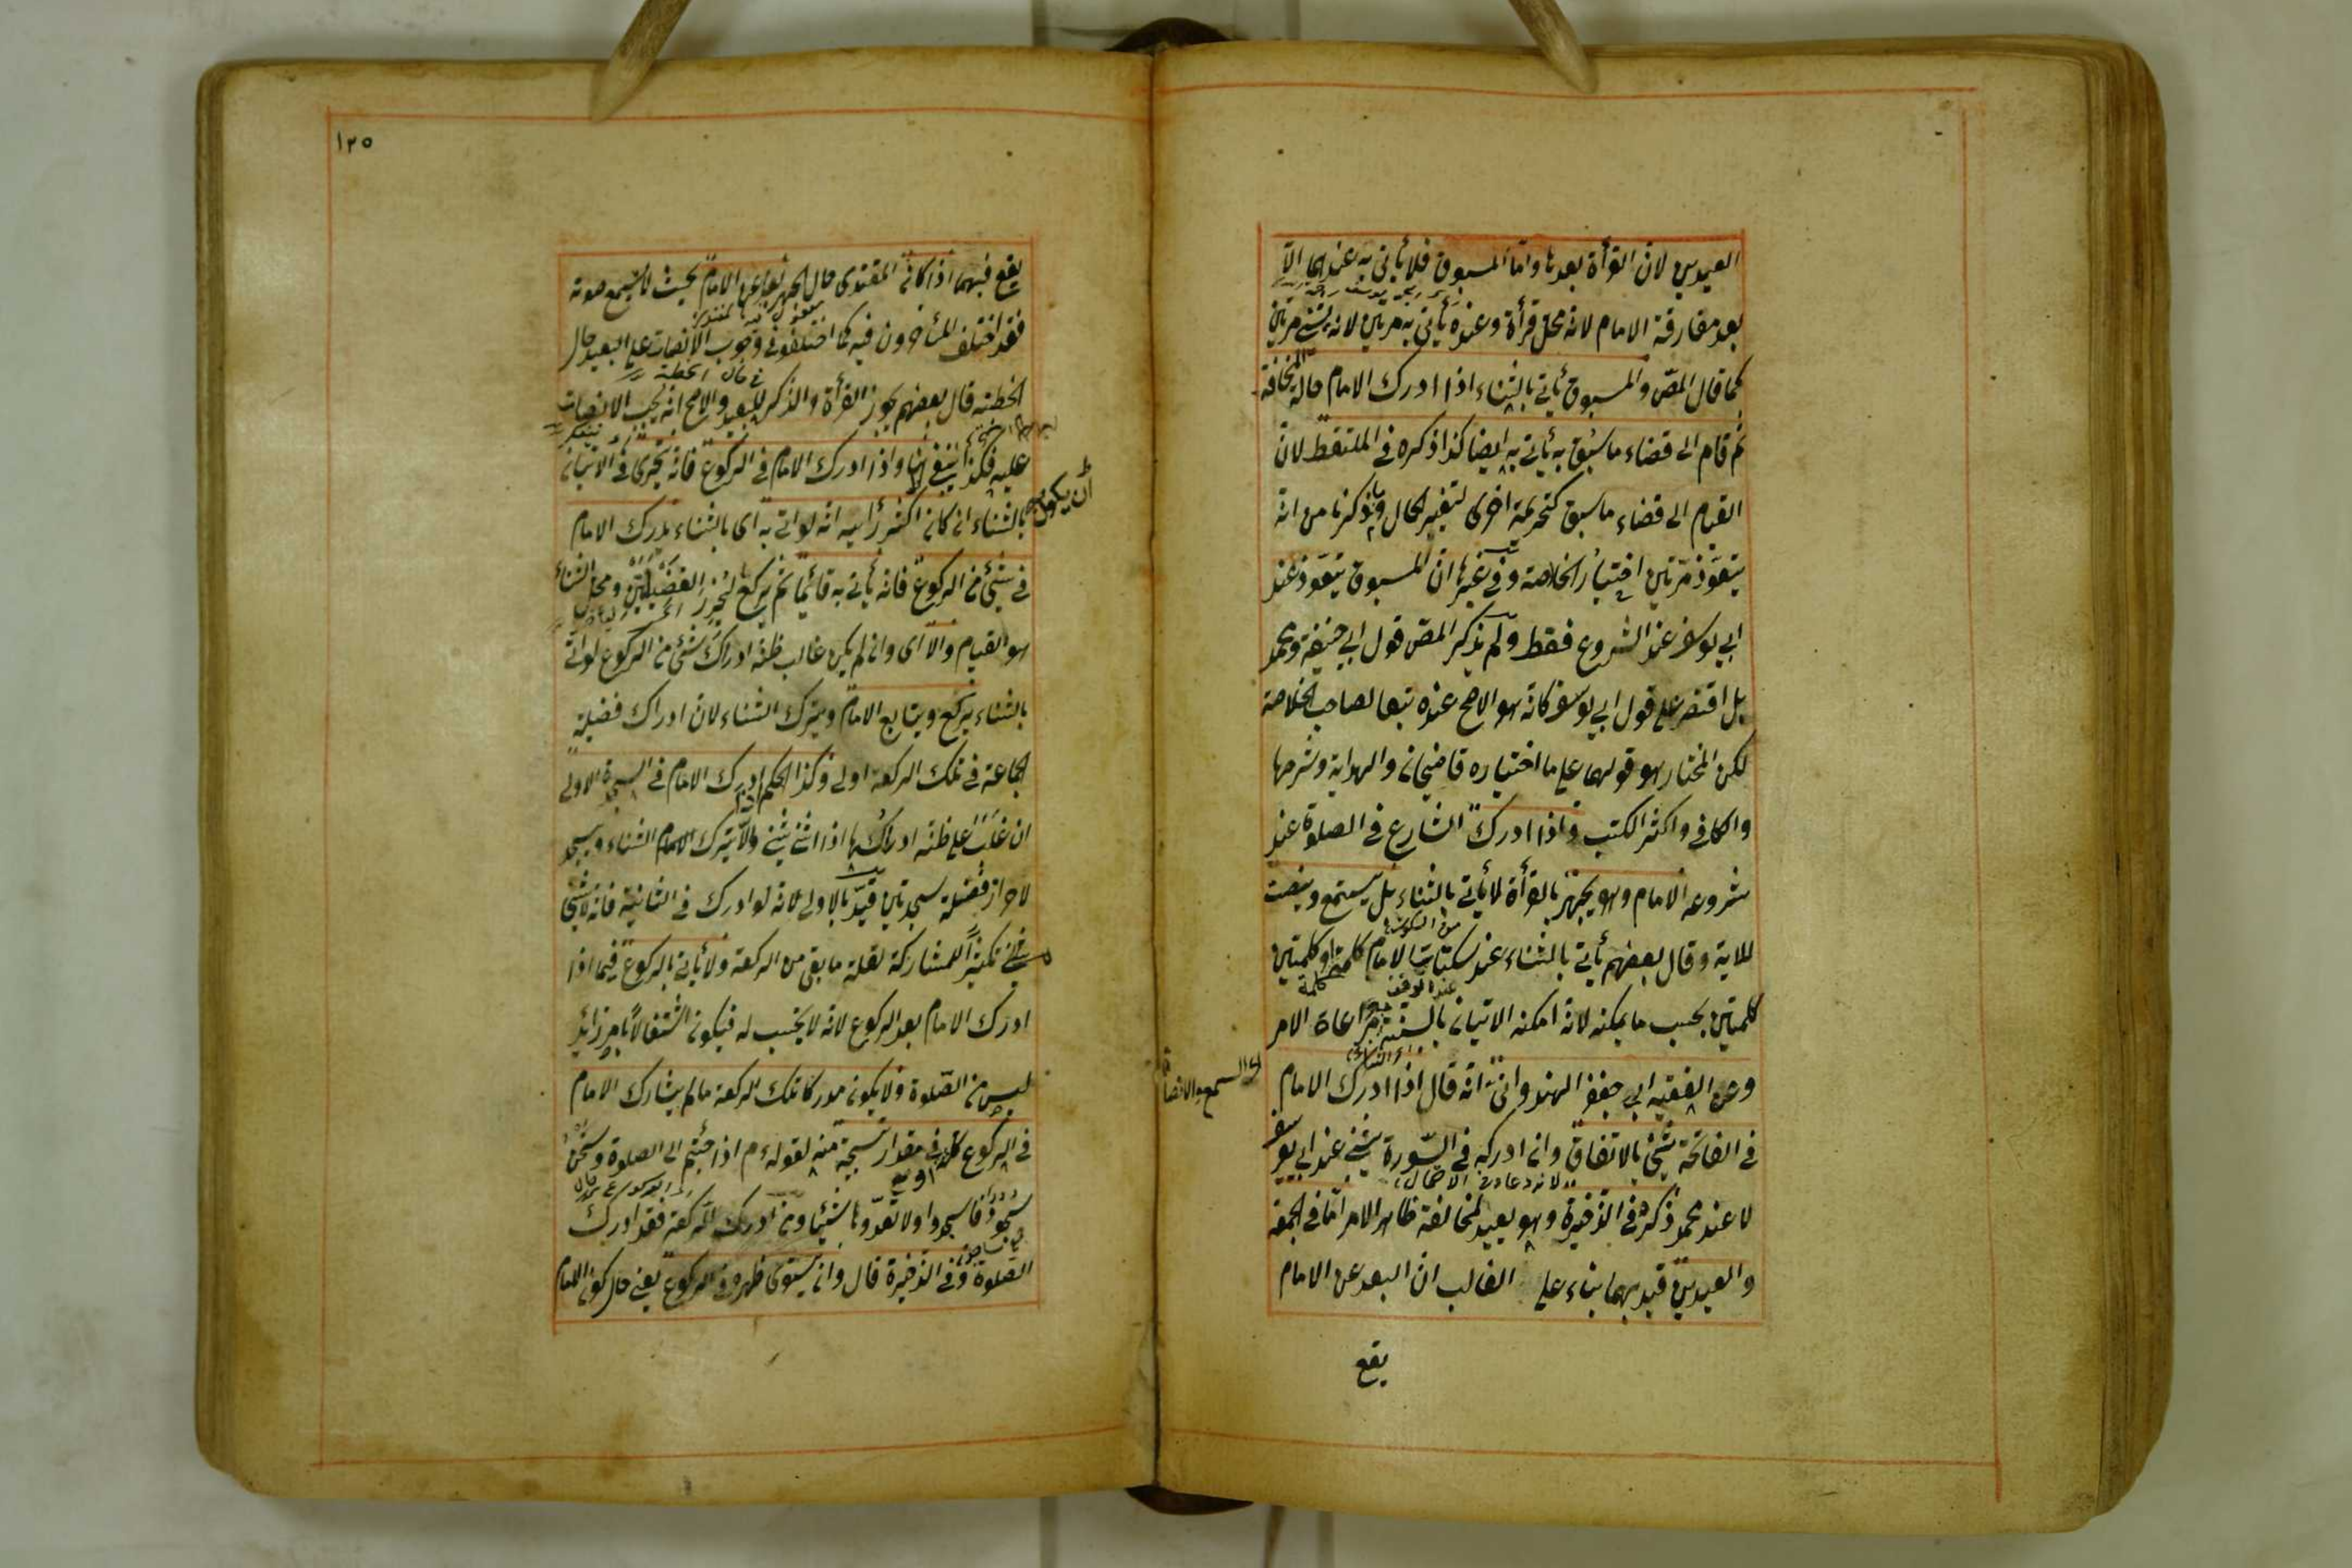 العيدين لان القرأة بعدها واما المسبوق فلا يأتي به عندهما الا
بعد مفارقة الامام لانه محل قرأة وعنده يأتي به مرتين لانه يثني مرتين
كما قال المص والمسبوق يأتي بالثناء اذا ادرك الامام حالة المخافة
ثم قام الى قضاء ما سبق به يأتي به ايضا كذا ذكره في الملتقط لان
القيام الى قضاء ما سبق كتحريمة اخرى لتغير الحال وما ذكرنا من انه
يتعوذ مرتين اختيار الخلاصة وفي غيرها ان المسبوق يتعوذ عند
ابي يوسف عند الشروع فقط ولم يذكر المص قول ابي حنيفة ومحمد
بل اقتصر على قول ابي يوسف كانه هو الاصح عنده تبعا لصاحب الخلاصة
لكن المختار هو قولهما على ما اختياره قاضيخان والهداية وشرحها
والكافي واكثر الكتب واذا ادرك الشارع في الصلوة عند
شروعه الامام وهو يجهر بالقرأة لا يأتي بالثناء بل يستمع وينصت
من السكوت
للاية وقال بعضهم يأتي بالثناء عند سكتات الامام كلمة او كلمتين
عند الوقف كلمة
كلمتين بحسب ما يمكنه لانه امكنه الاتيان بالسنة مراعاة الامر
اى السمع والانصات
وعن الفقيه ابي جعفر الهندواني انه قال اذا ادرك الامام
في الفاتحة يثني بالاتفاق وان ادركه في السورة يثني عند ابي يوسف
لا عند محمد ذكره في الذخيرة وهو بعيد لمخالفة ظاهر الامر اما في الجمعة
والعيدين قيد بهما بناء على الغالب ان البعد عن الامام
يقع
١٢٥
يقع فيهما اذا كان المقتدى حال الجهر بعيدا عن الامام بحيث لا يسمع صوته
فقد اختلف المتأخرون فيه كما اختلفوا في وجوب الانصات على البعيد حال
في حال الخطبة
الخطبة قال بعضهم يجوز القرأة والذكر للبعيد والاصح انه يجب الانصات
عليه فكذا ينبغي هنا واذا ادرك الامام في الركوع فانه يتحرى في الاتيان
ان يكون
بالثناء ان كان اكثر رأيه انه لو اتى به اى بالثناء يدرك الامام
في شئ من الركوع فانه يأتي به قائما ثم يركع ليحرز الفضيلتين ومحل الثناء
هو القيام والا اى وان لم يكن غالب ظنه ادراك شئ من الركوع لو اتى
بالثناء يركع ويتابع الامام ويترك الثناء لان ادراك فضيلة
الجماعة في تلك الركعة اولى وكذا الحكم اذا ادرك الامام في السجدة الاولى
ان غلب على ظنه ادراكها اذا اثنى يثني والا يترك الثناء ويسجد
لاحراز فضيلة سجدتين قيد بالاولى لانه لو ادرك في الثانية فانه لا يثني
تكثيرا للمشاركة لقلة ما بقي من الركعة ولا يأتي بالركوع فيما اذا
ادرك الامام بعد الركوع لانه لا يحتسب له فيكون اشتغالا بامر زائد
ليس من الصلوة ولا يكون مدركا تلك الركعة ما لم يشارك الامام
في الركوع كله او في مقدار تسبيحة منه لقوله م اذا جئتم الى الصلوة ونحن
سجود فاسجدوا ولا تعدوها شيئا ومن ادرك الركعة فقد ادرك
الصلوة وفي الذخيرة قال وان يستوى ظهره في الركوع يعني حال كون الامام